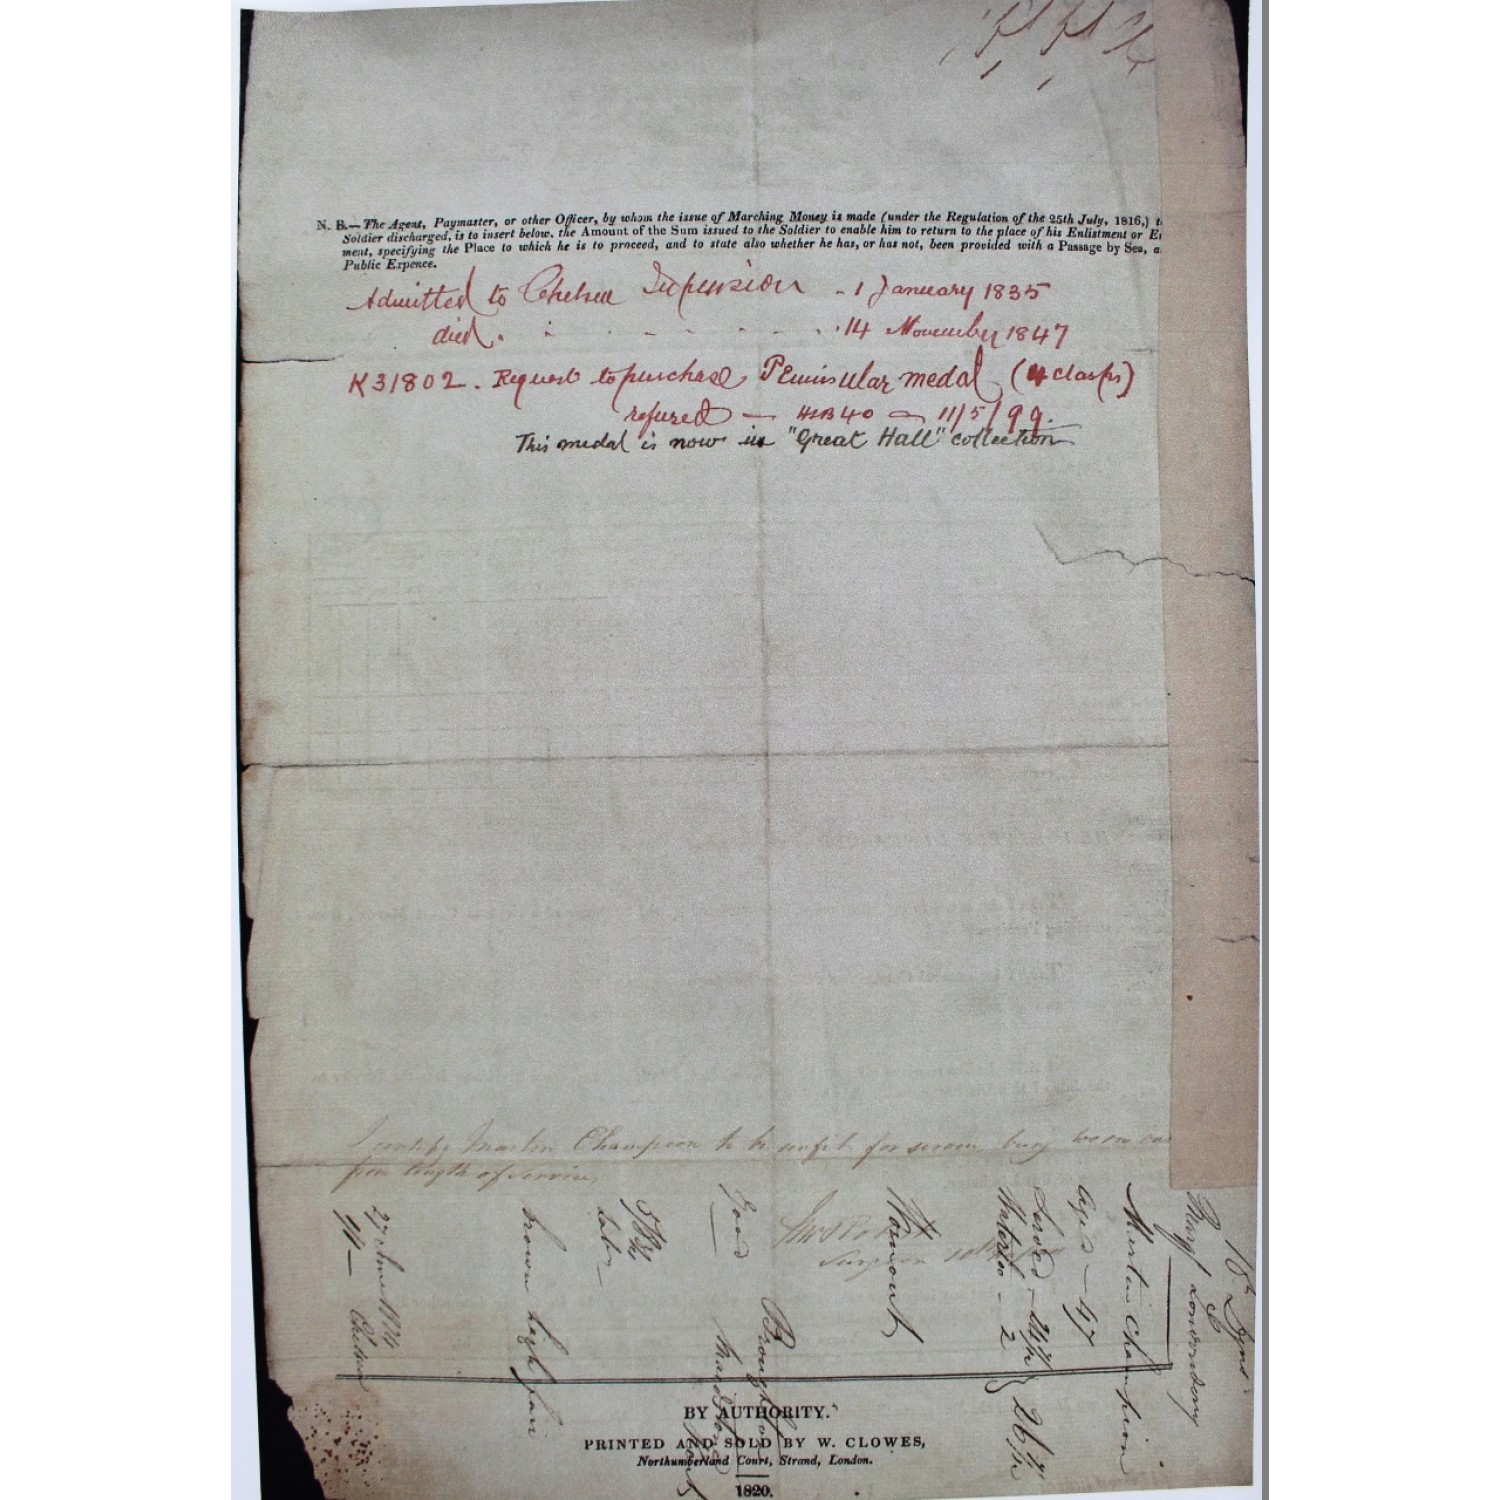 N. B.—The Agent, Paymaster, or other Officer, by whom the issue of Marching Money is made (under the Regulation of the 25th July, 1816,) t
Soldier discharged, is to insert below, the Amount of the Sum issued to the Soldier to enable him to return to the place of his Enlistment or E
ment, specifying the Place to which he is to proceed, and to state also whether he has, or has not, been provided with a Passage by Sea, a
Public Expence.
Admitted to Chelsea - 1 January 1835
died. 14 November 1847
K31802. Request to purchase Peninsular medal (4 clasps)
refused — — 11/5/99.
This medal is now in "Great Hall" collection
I certify Martin Champion to be unfit for service being worn
from length of service
Surgeon
Martin Champion
Aged - 47
Served -
Waterloo - 2
Good
Brown light fair
27 June 1834
Chelsea
BY AUTHORITY.
PRINTED AND SOLD BY W. CLOWES,
Northumberland Court, Strand, London.
1820.